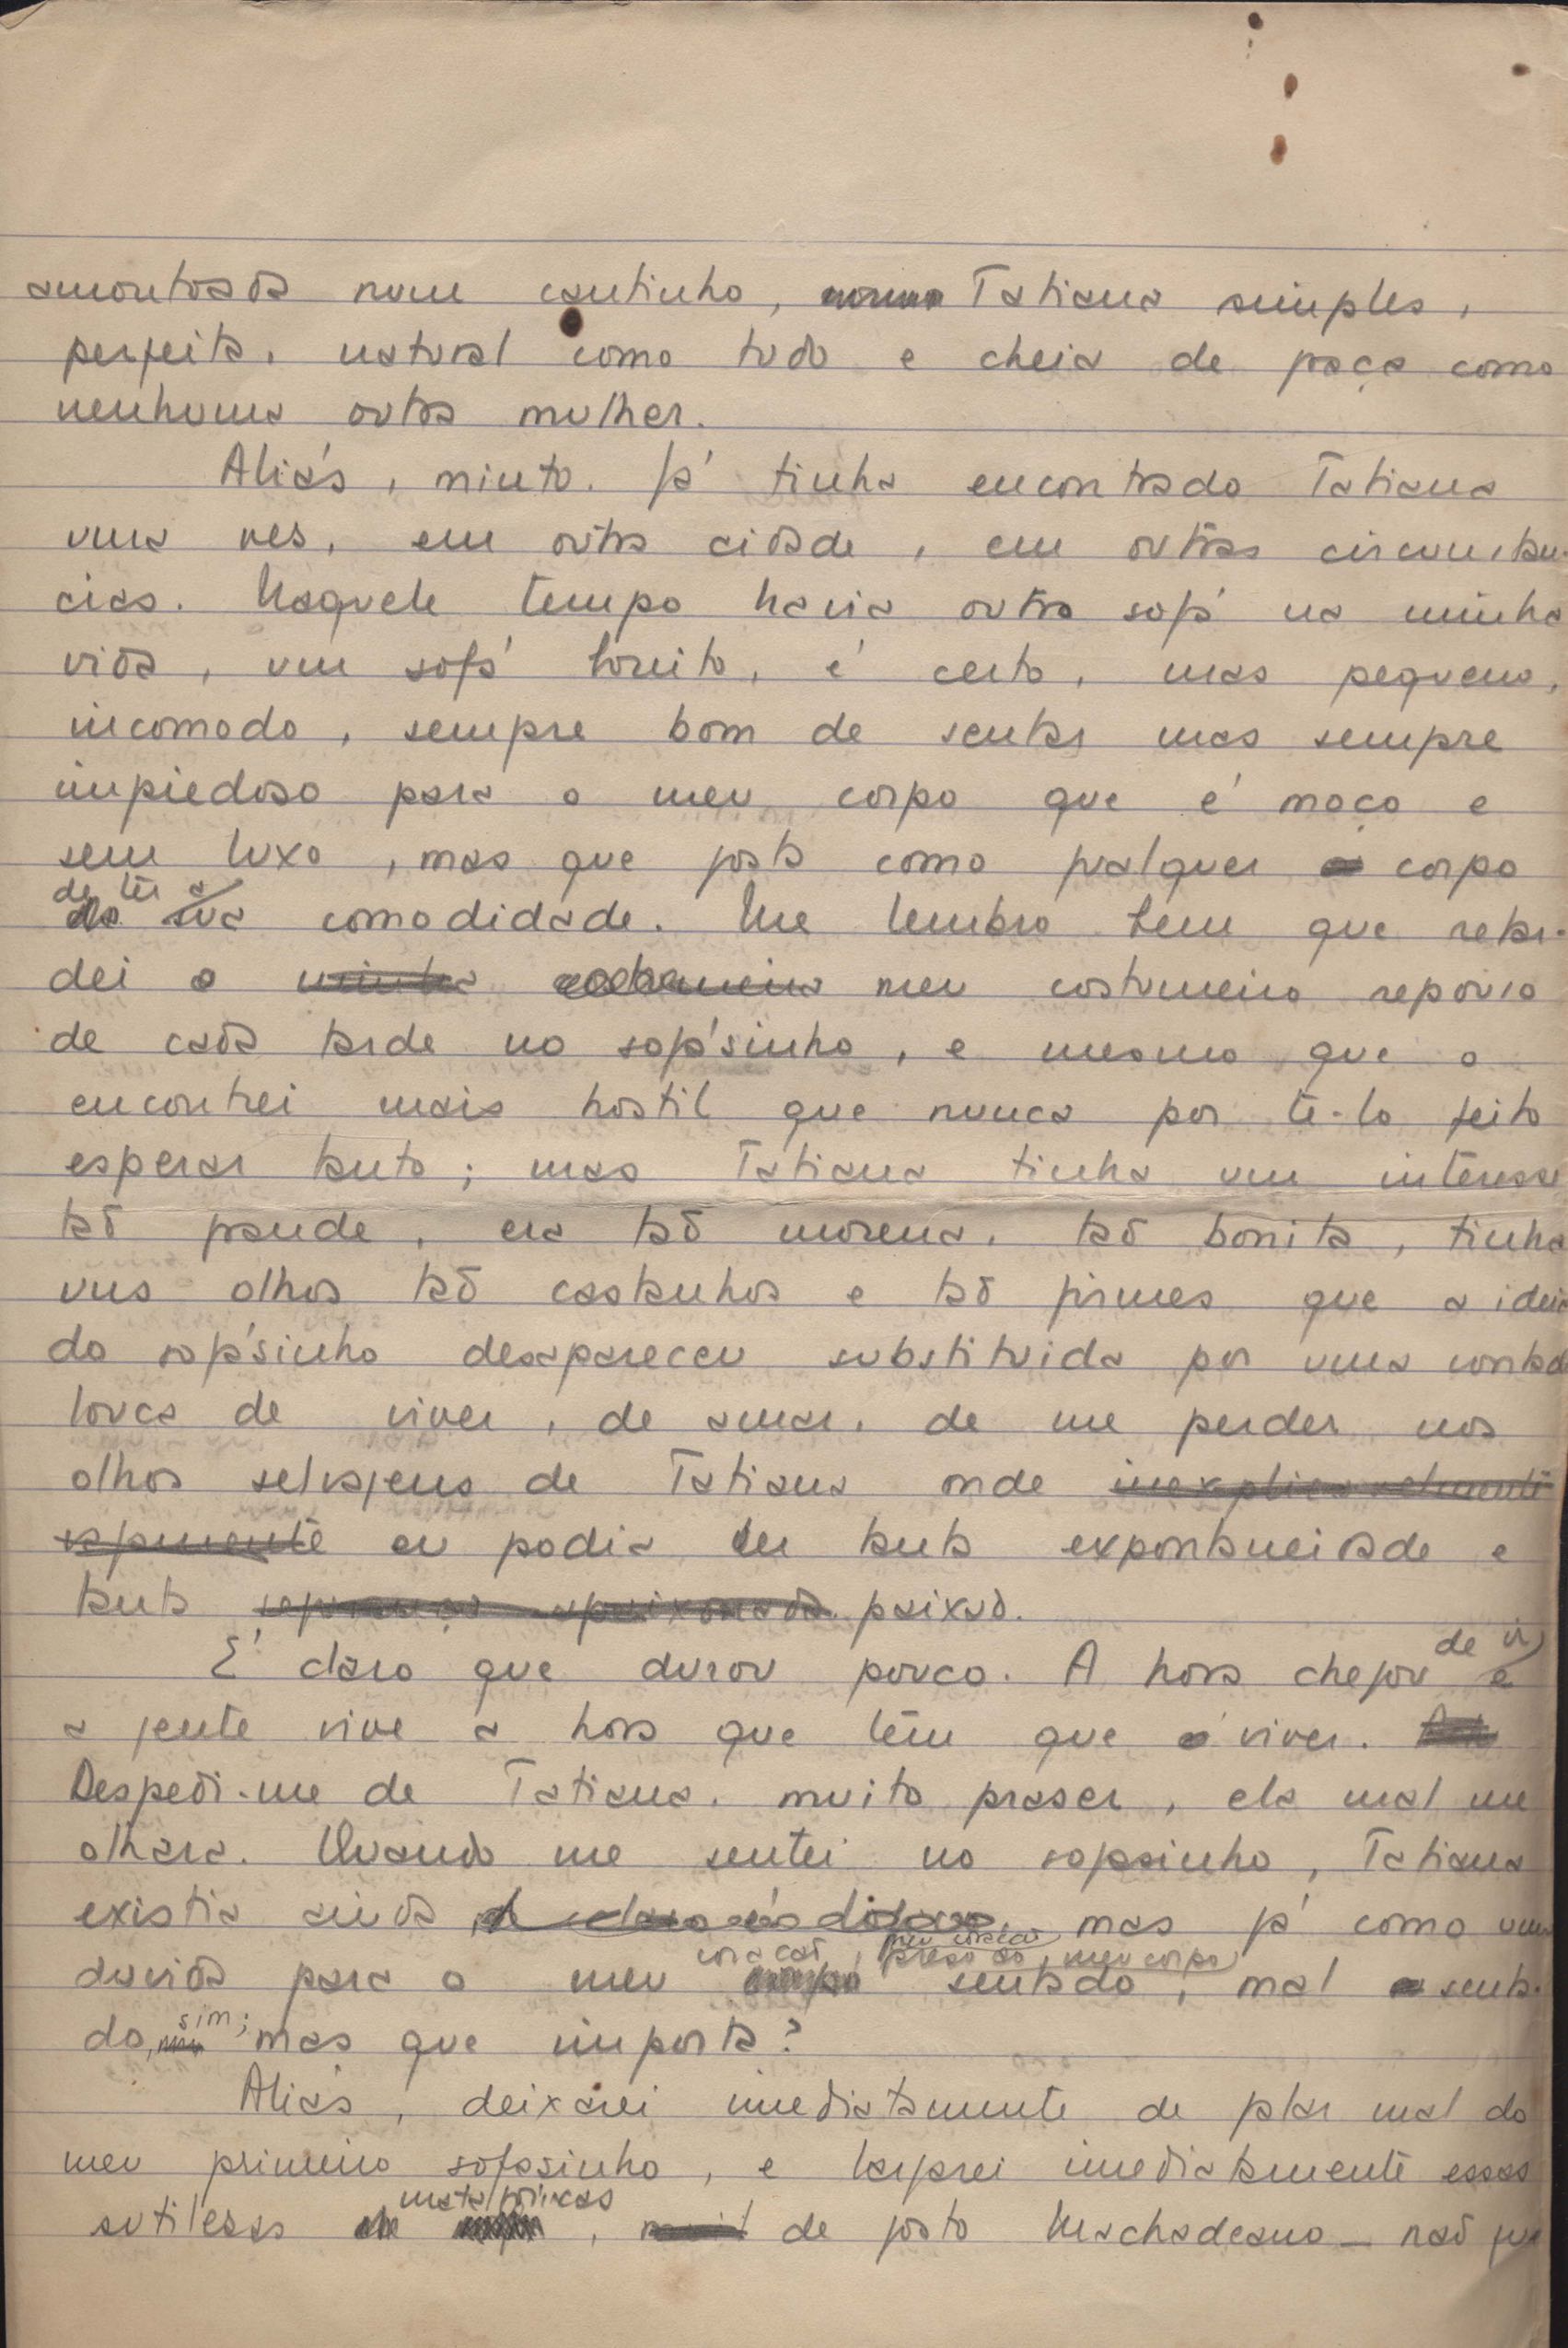 amontoada num cantinho, Tatiana simples,
perfeita, natural como tudo e cheia de graça como
nenhuma outra mulher.
Aliás, minto. Já tinha encontrado Tatiana
uma ves, em outra cidade, em outras circunstan-
cias. Naquele tempo havia outro sofá na minha
vida, um sofá bonito, é certo, mas pequeno,
incomodo, sempre bom de sentar mas sempre
impiedoso para o meu corpo que é moço e
sem luxo, mas que gosta como qualquer corpo
de ter a sua comodidade. Me lembro bem que retar-
dei o meu costumeiro repouso
de cada tarde no sofásinho, e mesmo que o
encontrei mais hostil que nunca por tê-lo feito
esperar tanto; mas Tatiana tinha um interesse
tão grande, era tão morena, tão bonita, tinha
uns olhos tão castanhos e tão firmes que a ideia
do sofásinho desapareceu substituida por uma vontade
louca de viver, de amar, de me perder nos
olhos selvagens de Tatiana onde inexplicavelmente
eu podia ler tanta expontaneidade e
tanta paixão.
É claro que durou pouco. A hora chegou de ir e
a gente vive a hora que têm que viver.
Despedi-me de Tatiana, muito praser, ela mal me
olhara. Quando me sentei no sofasinho, Tatiana
existia ainda, mas já como uma
duvida para o meu coração, preso ao meu corpo sentado, mal senta-
do, sim; mas que importa?
Aliás, deixarei imediatamente de falar mal do
meu primeiro sofasinho, e largarei imediatamente essas
sutilesas metafisicas, de gosto Machadeano — não que